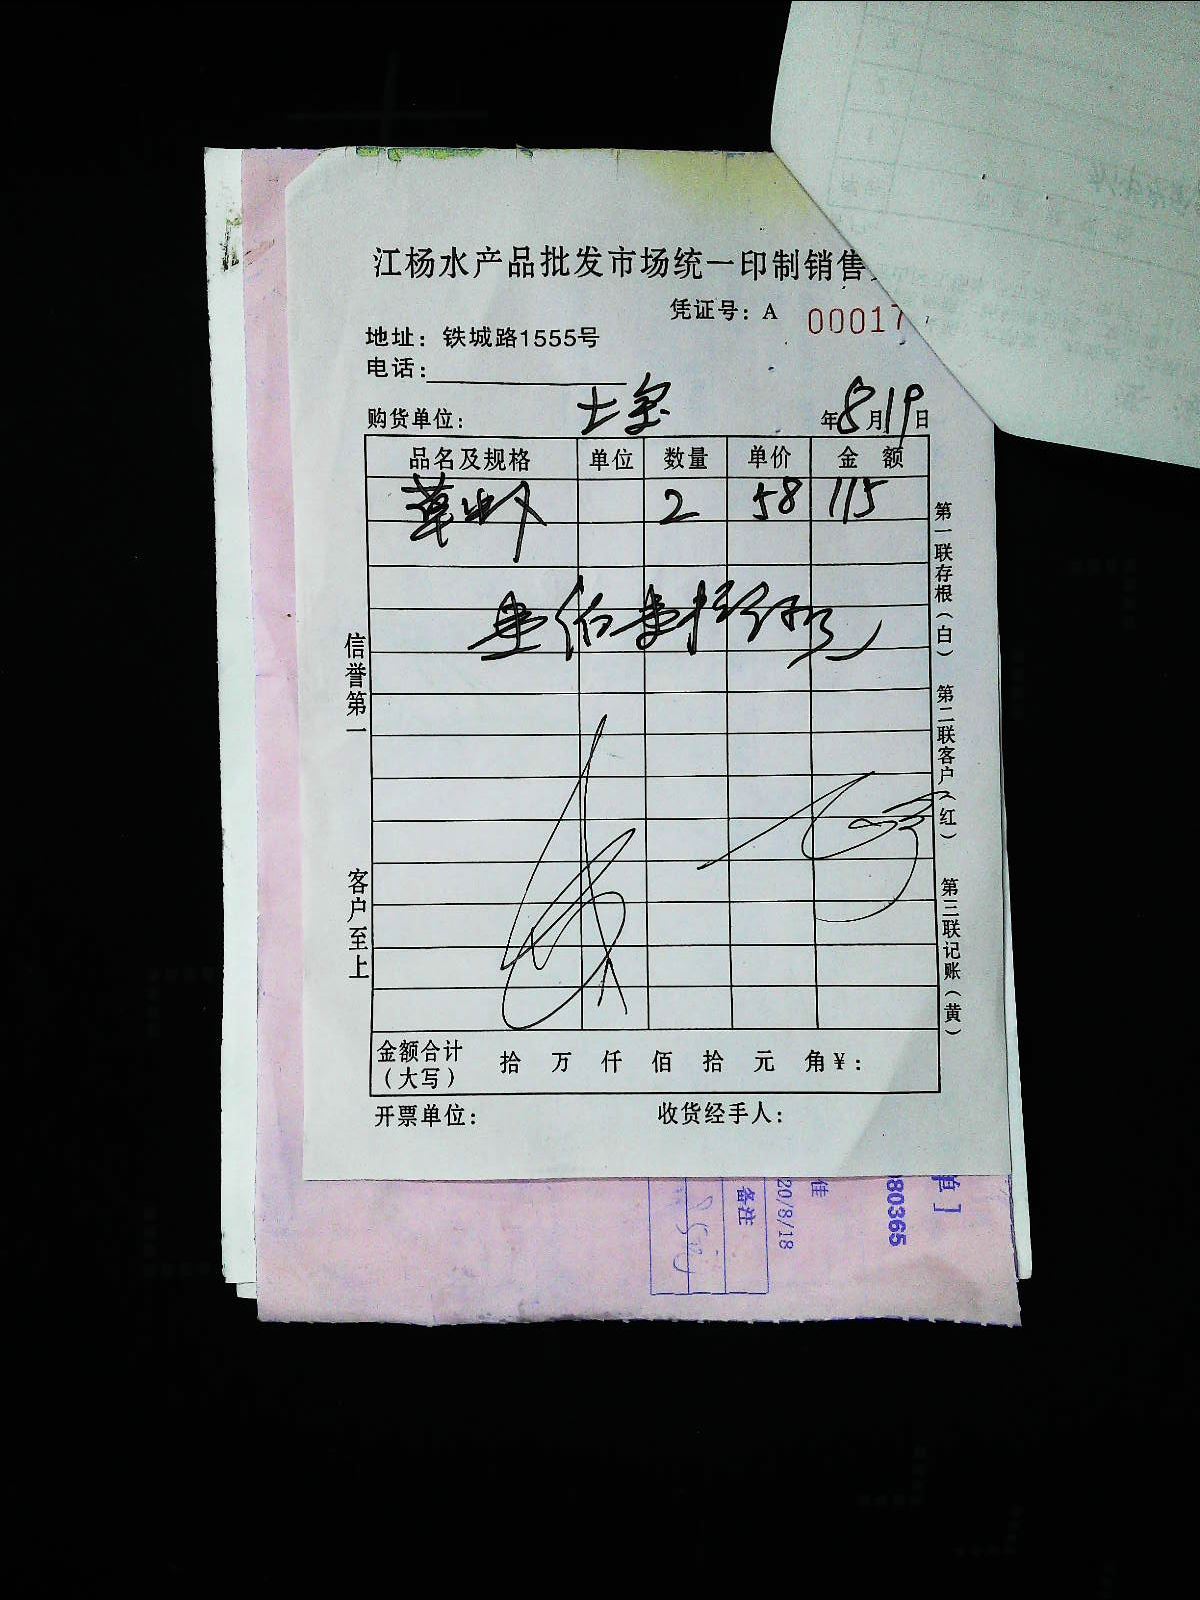 江杨水产品批发市场统一印制销售
凭证号：A 00017
地址：铁城路1555号
电话：
购货单位： 年8月19日
品名及规格 单位 数量 单价 金额
草 2 58 115
壹佰壹拾伍元
信誉第一
客户至上
第一联存根（白） 第二联客户（红） 第三联记账（黄）
金额合计（大写） 拾 万 仟 佰 拾 元 角 ¥：
开票单位： 收货经手人：
单]
80365
佳
20/8/18
备注